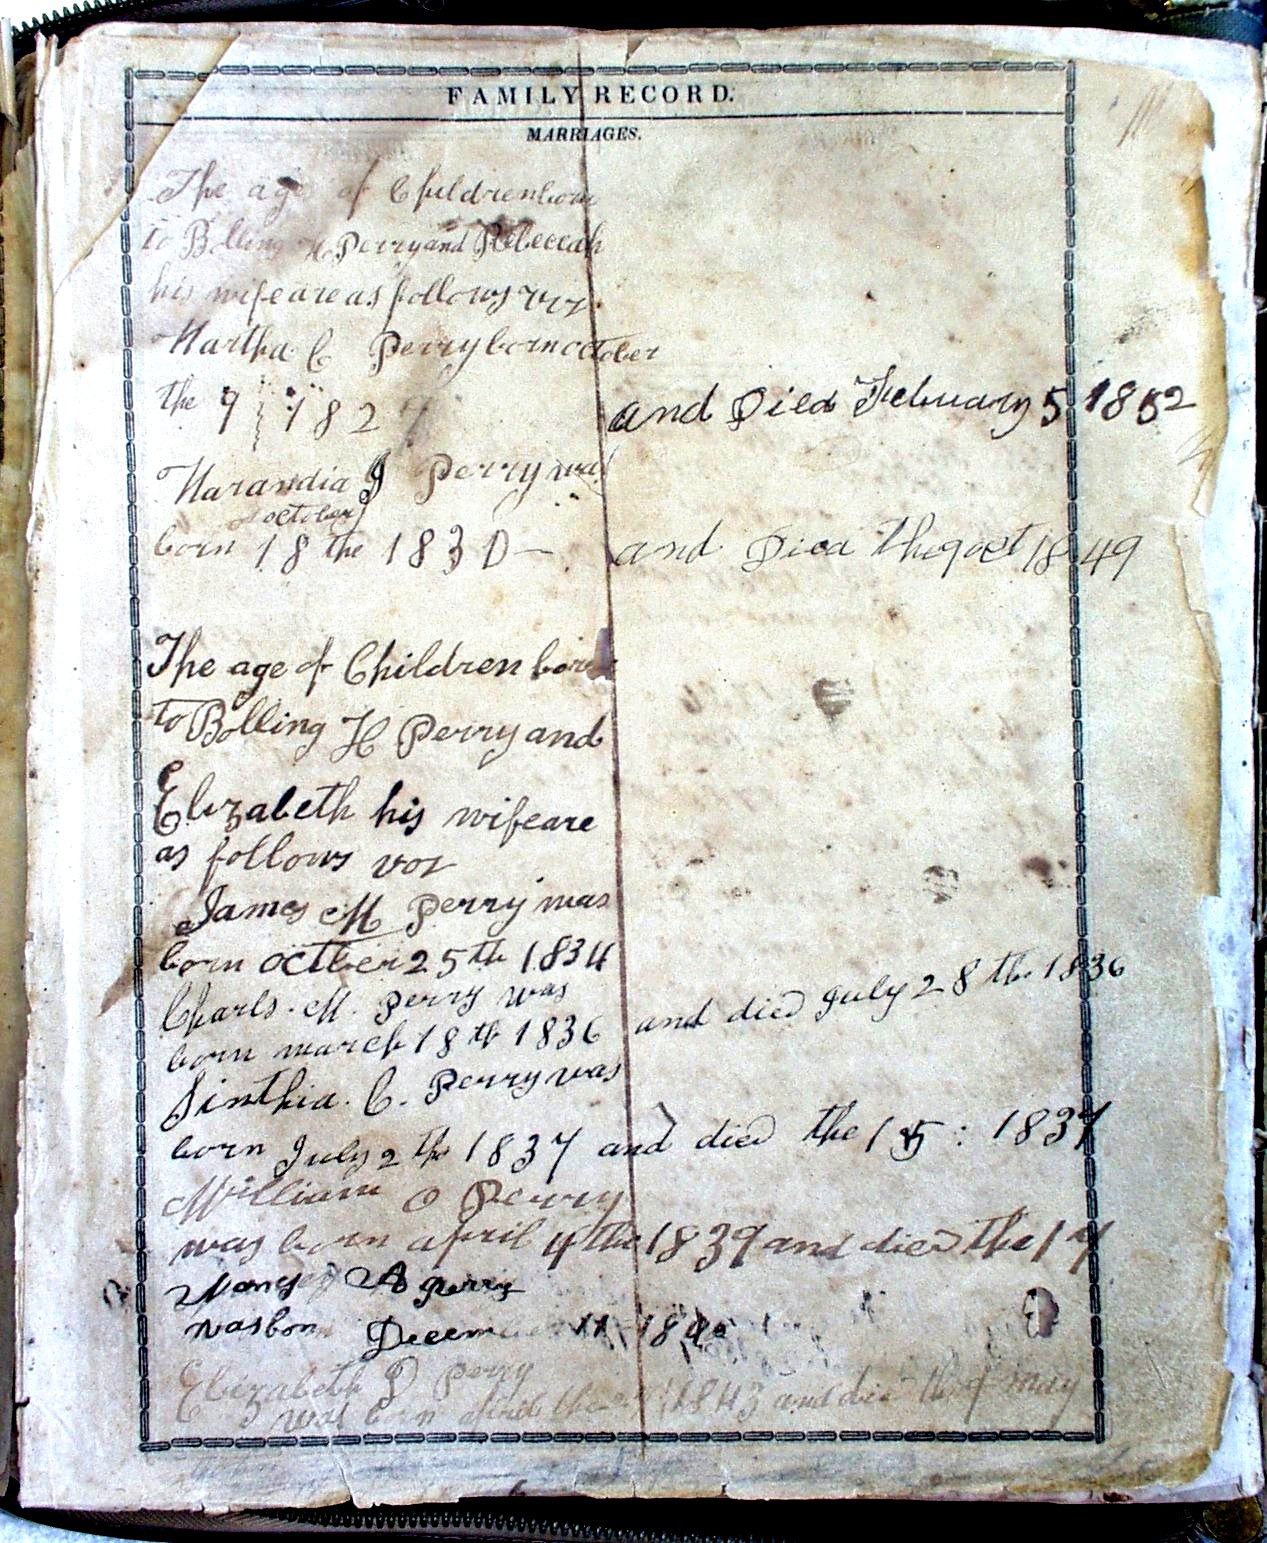 FAMILY RECORD.
MARRIAGES.
The age of Children born
to Bolling H Perry and Rebeccah
his wife are as follows viz
Martha C Perry born october
the 9 182 and Died February 5 1852
Marandia J Perry was
october
born 18 the 1830 — and Died the 9 oct 1849
The age of Children born
to Bolling H Perry and
Elizabeth his wife are
as follows viz
James M Perry was
born octber 25th 1834
Charls. M. Perry was
born march 18th 1836 and died July 28 th 1836
Sinthia. C. Perry was
born July 2 th 1837 and died the 15 : 1837
William O Perry
was born april 4 the 1839 and died the 17
A Perry
was born Decem 11 18
Elizabeth D Perry
was born the 1843 and died the may